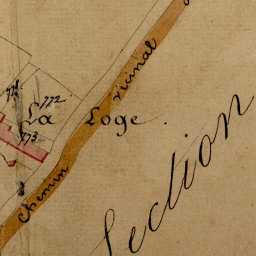 772
La Loge.
773
Chemin vicinal
Section